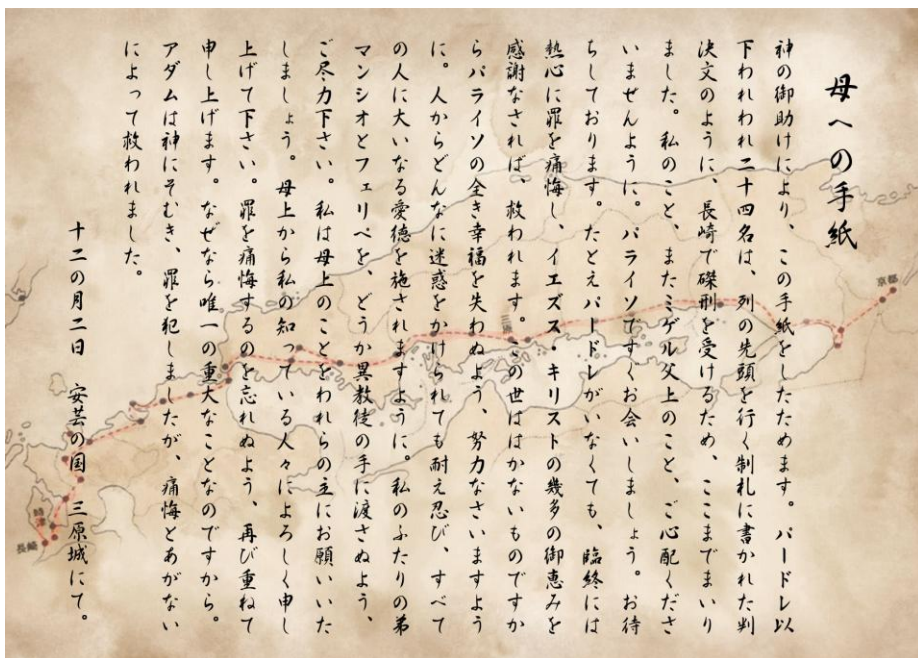 母への手紙
神の御助けにより、この手紙をしたためます。パードレ以
下われわれ二十四名は、列の先頭を行く制札に書かれた判
決文のように、長崎で磔刑を受けるため、ここまでまいり
ました。私のこと、またミゲル父上のこと、ご心配くださ
いませんように。パライソですぐお会いしましょう。お待
ちしております。たとえパードレがいなくても、臨終には
熱心に罪を痛悔し、イエズス・キリストの幾多の御恵みを
感謝なされば、救われます。この世ははかないものですか
らパライソの全き幸福を失わぬよう、努力なさいますよう
に。人からどんなに迷惑をかけられても耐え忍び、すべて
の人に大いなる愛徳を施されますように。私のふたりの弟
マンシオとフェリペを、どうか異教徒の手に渡さぬよう、
ご尽力下さい。私は母上のことをわれらの主にお願いいた
しましょう。母上から私の知っている人々によろしく申し
上げて下さい。罪を痛悔するのを忘れぬよう、再び重ねて
申し上げます。なぜなら唯一の重大なことなのですから。
アダムは神にそむき、罪を犯しましたが、痛悔とあがない
によって救われました。
十二の月二日　安芸の国　三原城にて。
京都
三原
時津
長崎